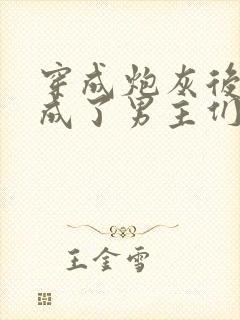 穿成炮灰後
成了男主们
王金雪